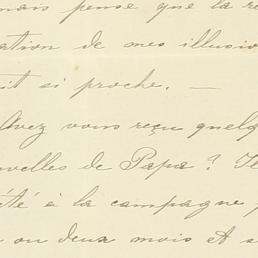 mais pense que la re
ation de mes illusio
it si proche. —
Avez vous reçu quelq
velles de Papa? Je
été à la campagne p
ou deux mois et s